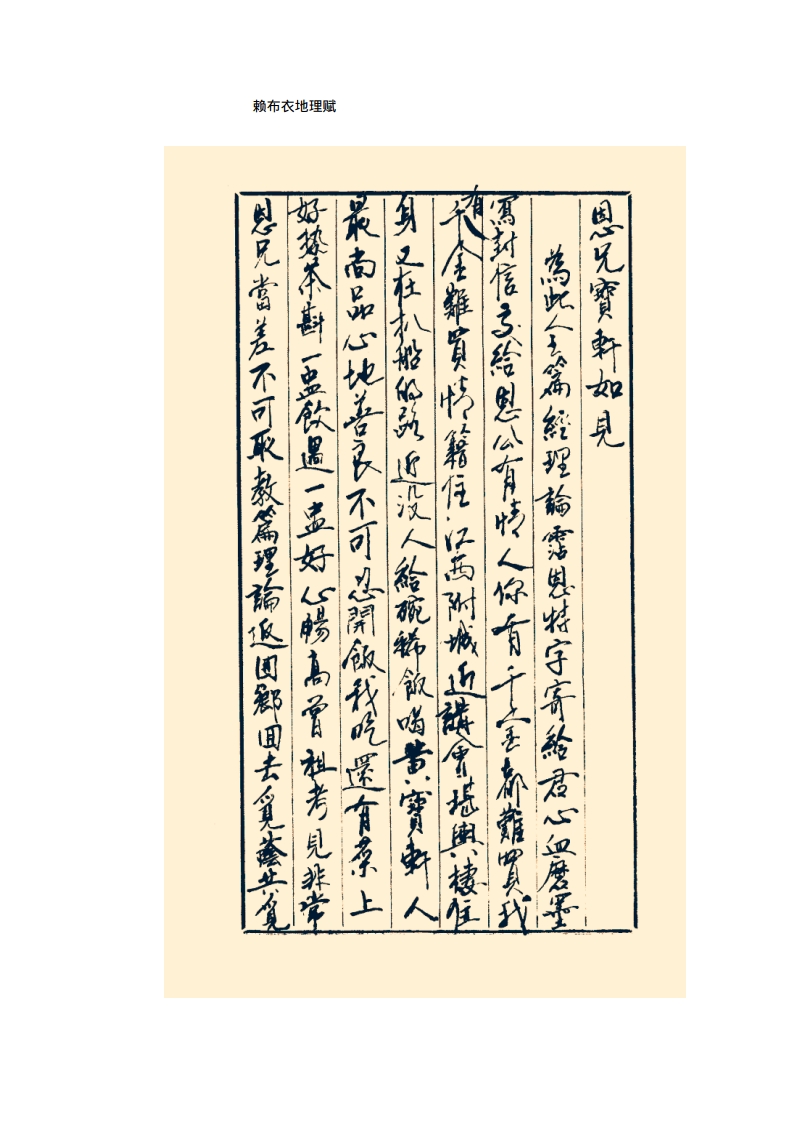 赖布衣地理赋
恩兄寶軒如見
為此人主篇經理論霑恩特字寄給君心血磨墨
寫封信交給恩公有情人你有千金都難買我
有千金難買情籍住江西附城近講會堪輿棲住
身又在扒船的路近没人給碗稀飯喝黄寶軒人
最尚品心地善良不可忍開飯我吃還有菜上
好熱茶斟一盅飲過一盅好心暢高曾祖考見非常
恩兄當差不可取教篇理論返囬鄉囬去覓蔭共覓